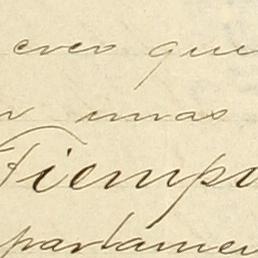 creo que
unas
Tiemp
parlamen